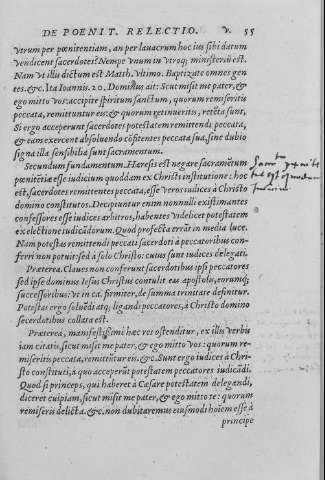 DE POENIT. RELECTIO. V. 55
vtrum per pœnitentiam, an per lauacrum hoc ius sibi datum
vendicent sacerdotes? Nempe vnum in vtroq; ministeriũ est.
Nam vt illi dictum est Matth. vltimo. Baptizate omnes gen
tes. &c. Ita Ioannis. 20. Dominus ait: Scut misit me pater, &
ego mitto vos: accipite spiritum sanctum, quorum remiseritis
peccata, remittuntur eis: & quorum retinueritis, retẽta sunt.
Si ergo acceperunt sacerdotes potestatem remittendi peccata,
& eam exercent absoluendo cõfitentes peccata sua, sine dubio
signa illa sensibilia sunt sacramentum.
Secundum fundamentum. Hæresis est negare sacramẽtum
pœnitẽtiæ esse iudicium quoddam ex Christi institutione: hoc
est, sacerdotes remittentes peccata, esse veros iudices à Christo
domino constitutos. Decipiuntur enim nonnulli existimantes
confessores esse iudices arbitros, habentes videlicet potestatem
ex electione iudicãdorum. Quod profecta errãt in media luce.
Nam potestas remittendi peccati sacerdoti à peccatoribus con-
ferri non potuit: sed à solo Christo: cuius sunt iudices delegati.
Præterea. Claues non conferunt sacerdotibus ipsi peccatores
sed ipse dominus Iesus Christus contulit eas apostolis, eorumq;
successoribus: vt in ca. firmiter, de summa trinitate definitur.
Potestas ergo soluẽdi atq; ligandi peccatores, à Christo domino
sacerdotibus collata est.
Præterea, manifestissimè hæc res ostenditur, ex illis verbis
iam citatis, sicut misit me pater, & ego mitto vos: quorum re-
miseritis peccata, remittũtur eis. &c. Sunt ergo iudices à Chri-
sto constituti, à quo acceperũt potestatem peccatores iudicãdi.
Quod si princeps, qui haberet à Cæsare potestatem delegandi,
diceret cuipiam, sicut misit me pater, & ego mitto te: quorum
remiseris delicta. &c. non dubitaremus eiusmodi hoiẽm esse à
principe